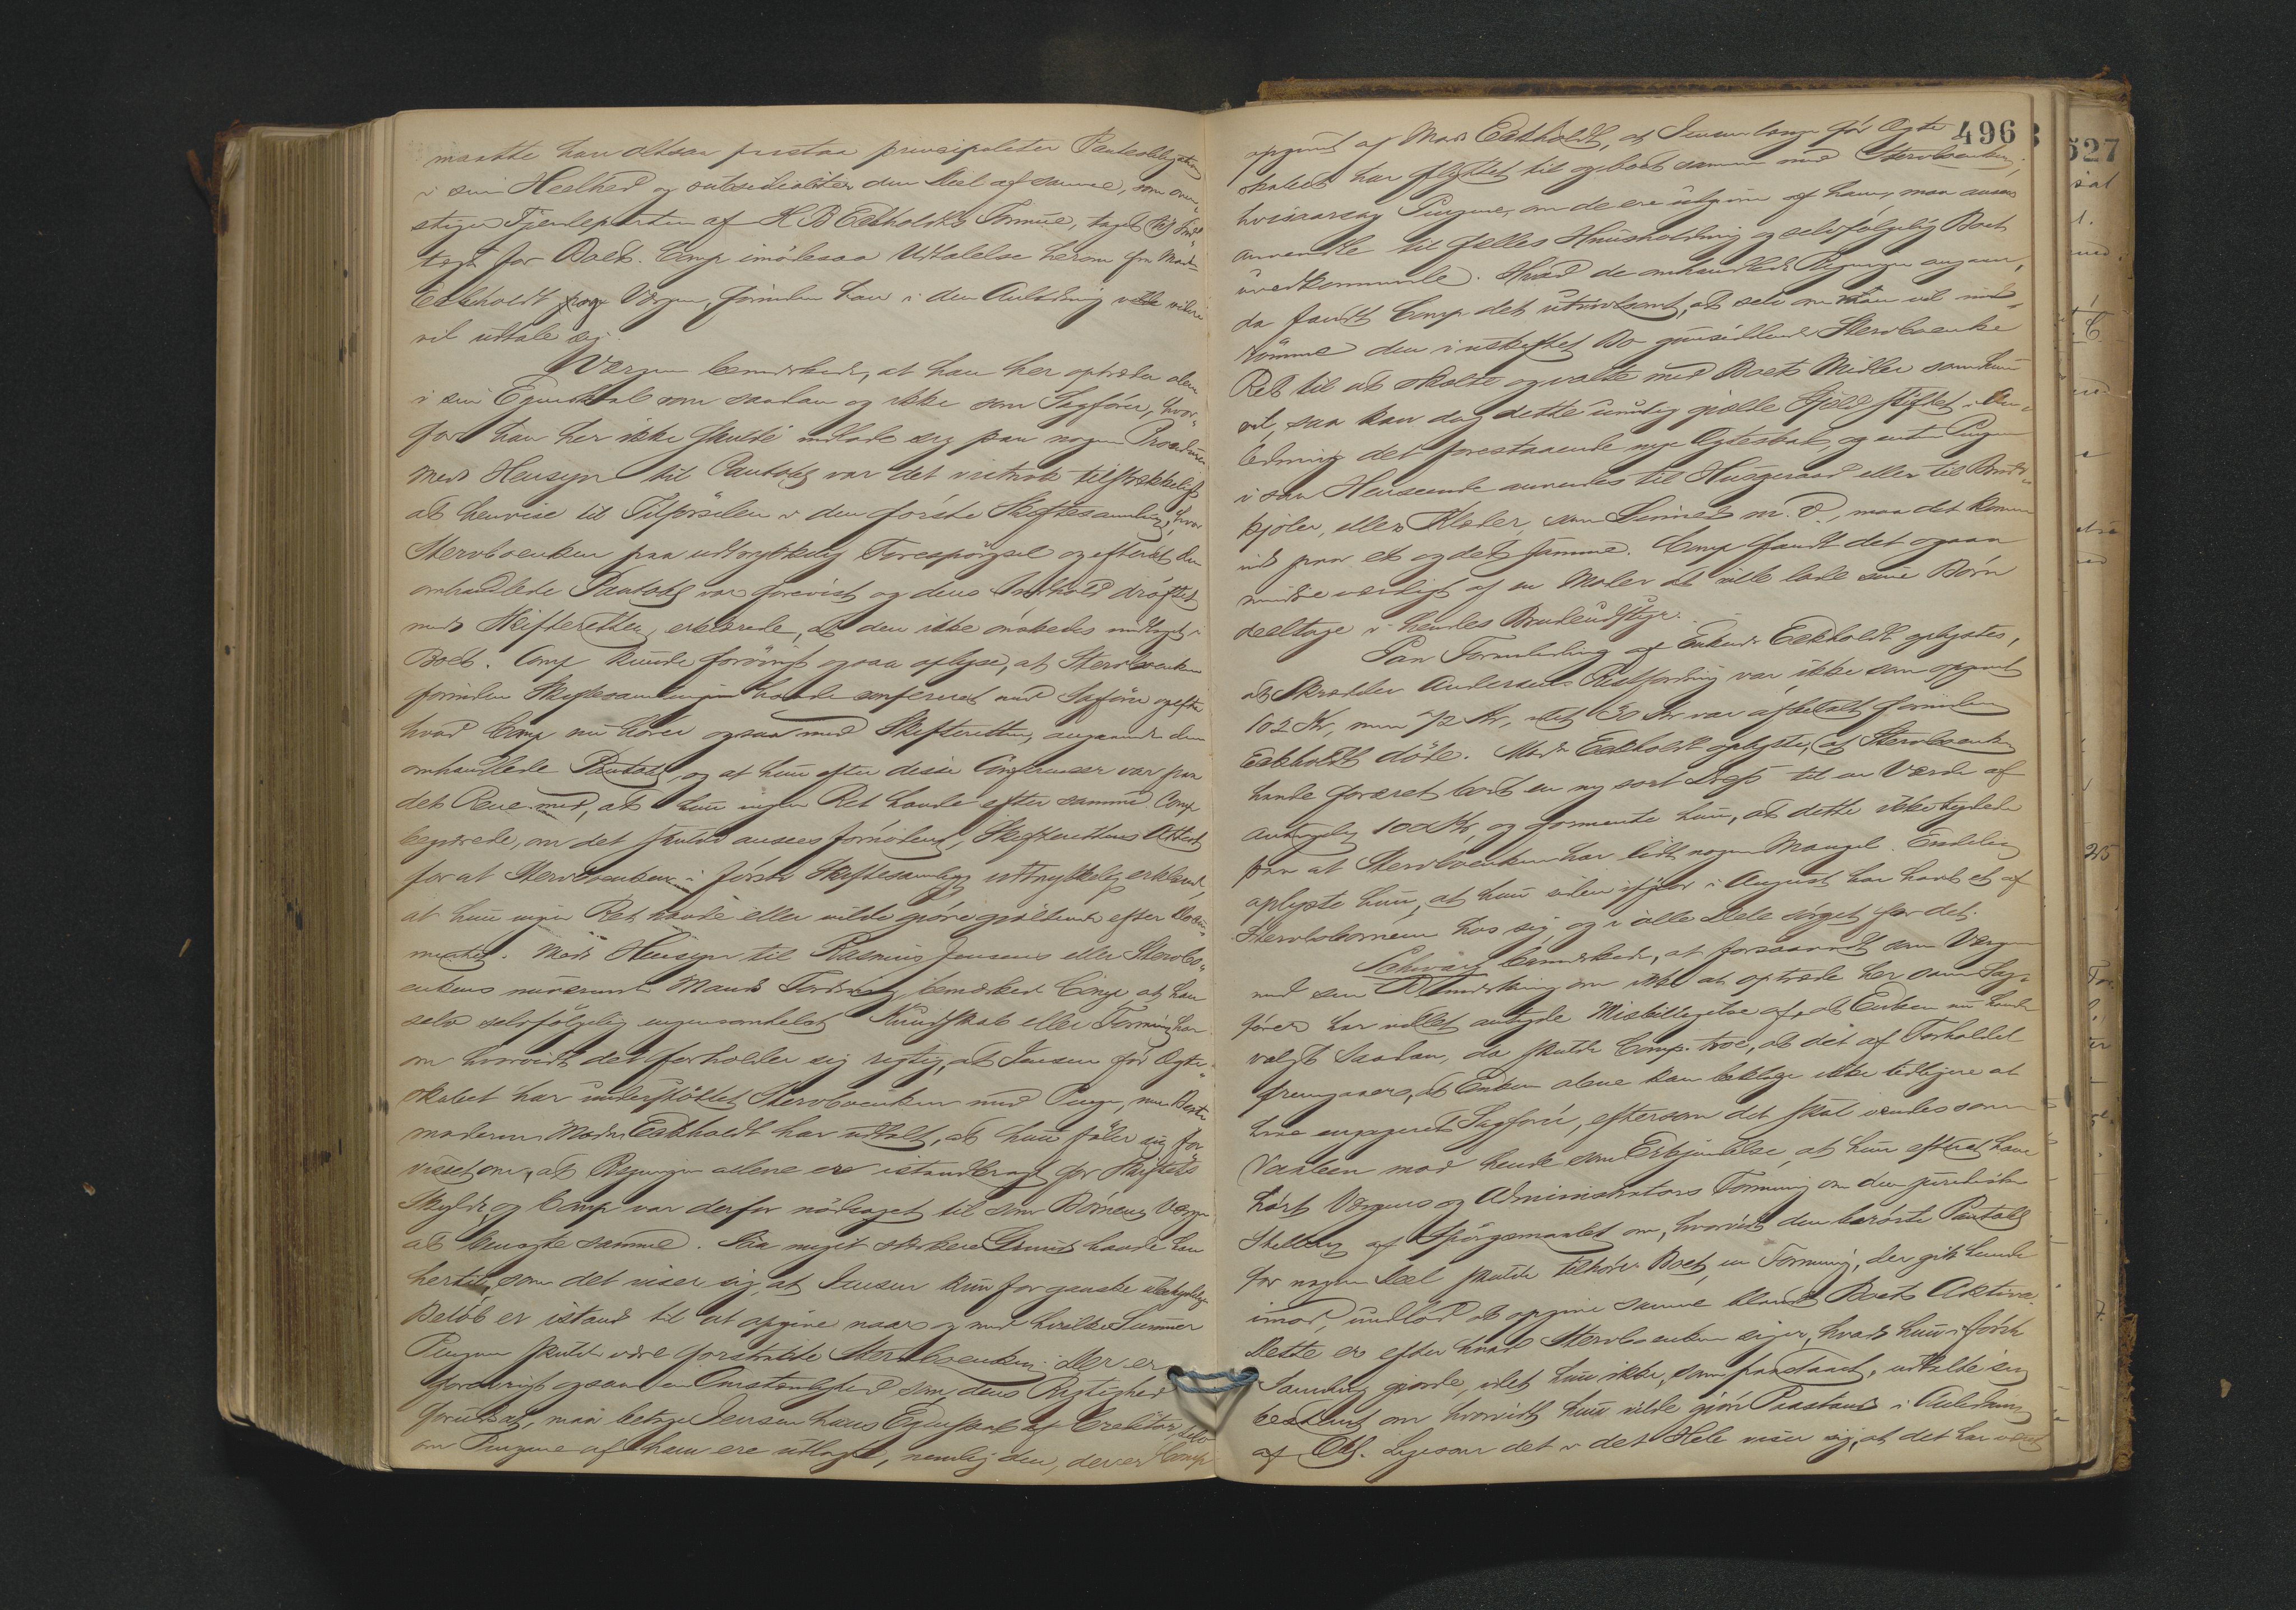 maatte han altsaa paastaa principaliter Panteobligation
i sin Heelhed og subsidialiter den Deel af samme, som over¬
stiger Fjerdeparten af H B Eekholdts Formue, taget til Ind¬
tægt for Boet. Comp imødesaa Udtalelse herom fra Mad.
Eekholdt og Værgen, forinden han i den Anledning videre
vil udtale sig.
Værgen bemærkede, at han her optræder alene
i sin Egenskab som saadan og ikke som Sagfører, hvor¬
for han her ikke skulde indlade sig paa nogen Procedure
Med Hensyn til Pantobl var det vistnok tilstrækkeligt
at henvise til Tilførselen i den første Skiftesamling, hvor
Stervboenken paa udtrykkelig Forespørgsel og efterat den
omhandlede Pantobl var forevist og dens Indhold drøftet
med Skifteretten, erklærede, at den ikke ønskedes indtaget i
Boet. Comp kunde forøvrigt ogsaa oplyse, at Stervboenken
forinden Skiftesamlingen havde confereret med Sagfører og efter
hvad Comp nu hører ogsaa med Skifteretten, angaaende den
omhandlede Pantobl, og at hun efter disse Conferencer var paa
det Rene med, at hun ingen Ret havde efter samme. Comp
begjærede, om det skulde ansees fornødent, Skifterettens Attest
for at Stervboenken i første Skiftesamling udtrykkelig erklærede,
at hun ingen Ret havde eller vilde gjøre gjældende efter Docu¬
mentet. Med Hensyn til Rasmus Jensens eller Stervbo¬
enkens nuværende Mands Fordring, bemærked Comp, at han
selv selvfølgelig ingensomhelst Kundskab eller Formening har
om hvorvidt det forholder sig rigtig, at Jensen før Ægte¬
skabet har understøttet Stervboenken med Penge, men Beste¬
moderen Madm Eekholdt har udtalt, at hun føler sig for¬
visset om, at Regningen allene er istandbragt for Skiftets
Skyld, og Comp var derfor nødsaget til som Børnenes Værge
at benegte samme. Saa meget stærkere Grund havde han
hertil, som det viser sig, at Jensen kun for ganske ubetydelige
Beløb er istand til at opgive naar og med hvilke Summer
Pengene skulde være forstrakte Stervboenken. Der er
forøvrigt ogsaa en Omstændighed som, dens Rigtighed
forudsat, maa betage Jensen hans Egenskab af Creditor, selv
om Pengene af ham ere udlagte, nemlig den, der er Comp
496
opgivet af Mad Eekholdt, at Jensen længe før Ægte
skabet har flyttet til og boet sammen med Stervboenken,
hvisaarsag Pengene, om de ere udgivne af ham, maa ansees
anvendte til fælles Huusholdning og selvfølgelig Boet
uvedkommende. Hvad de omhandlede Regninger angaar,
da fandt Comp det utvivlsomt, at selv om man vil ind¬
rømme den i uskiftet Bo gjensiddende Stervboenke
Ret til at skalte og valte med Boets Midler som hun
vil, saa kan dog dette umulig gjælde Gjeld stiftet i An¬
ledning det forestaaende nye Ægteskab, og enten Pengene
i saa Henseende anvendes til Husgeraad eller til Brude¬
kjoler, eller Klæder, som Linned m. v., maa det komme
ind paa et og det samme. Comp fandt det ogsaa
mindre værdigt af en Moder at ville lade sine Børn
deeltage i hendes Brudeudstyr.
Paa Formeding af Enkemd Eekholdt oplystes,
at Skrædder Andersens Restfordring var ikke som opgivet
102 Kr, men 72 Kr, idet 30 Kr var afbetalt forinden
Eekholdt døde. Mad Eekholdt oplyste, at Stervboenken
havde foræret bort en ny sort Dragt til en Værdi af
antagelig 100 Kr, og formente hun, at dette ikke tydede
paa at Stervboenken har lidt nogen Mangel. Endelig
oplyste hun, at hun siden ifjor i August har havt et af
Stervbobørnene hos sig og i alle Dele sørget for det.
Schwarz bemærkede, at forsaavidt som Værgen
med sin Bemærkning om ikke at optræde her som Sag¬
fører har villet antyde Misbilligelse af, at Enken nu havde
valgt Saadan, da skulde Comp. troe, at det af Forholdet
fremgaaer, at Enken alene kan beklage ikke tidligere at
have engageret Sagfører, eftersom det skal vendes som
Vaaben mod hende som Erkjendelse, at hun efterat have
hørt Værgens og Administrators Formening om den juridiske
Stilling af Spørgsmaalet om, hvorvidt den berørte Pantobl
for nogen Deel skulde tilhøre Boet, en Formening, der gik hende
imod, undlod at opgive samme blandt Boets Aktiva.
Dette er efter hvad Stervboenken siger, hvad hun i første
Samling gjorde, idet hun ikke, som paastaaet, udtalte sig
bestemt om hvorvidt hun vilde gjøre Paastand i Anledning
af Obl. Ligesom det i det Hele viser sig, at det har været
527